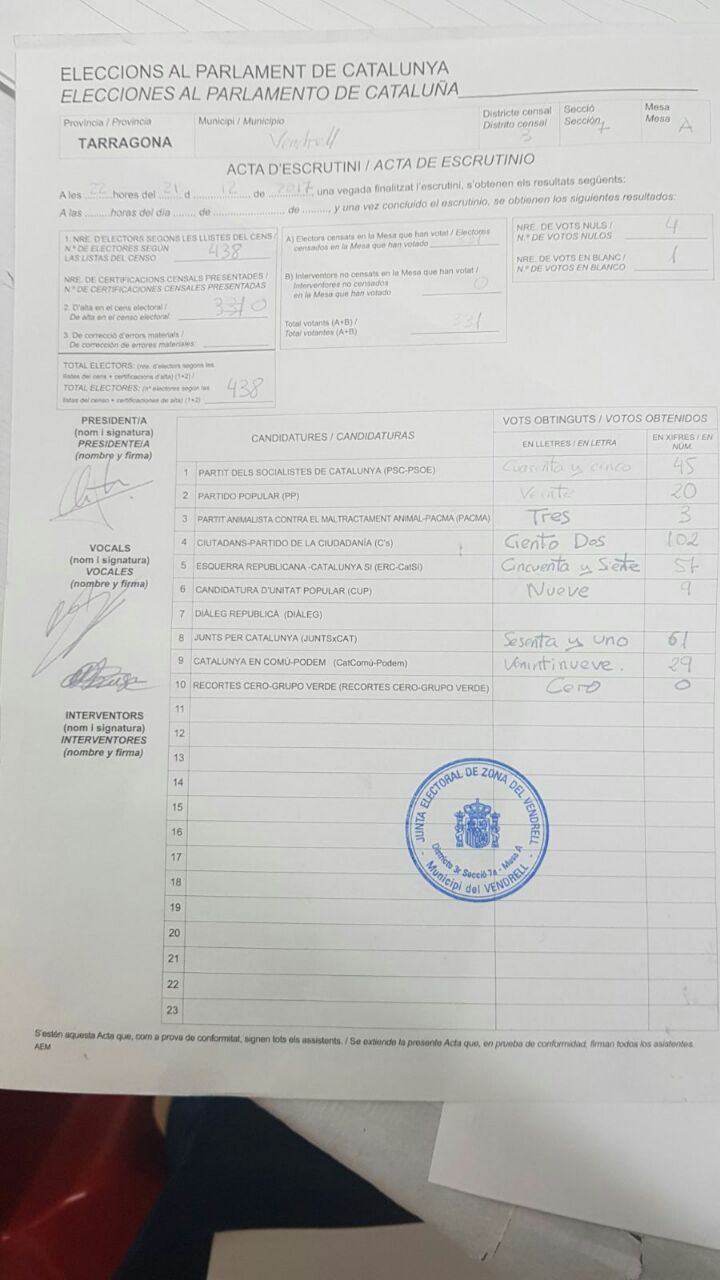 ELECCIONS AL PARLAMENT DE CATALUNYA
ELECCIONES AL PARLAMENTO DE CATALUÑA
Província / Provincia
TARRAGONA
Municipi / Municipio
Vendrell
Districte censal
Distrito censal
3
Secció
Sección
7
Mesa
Mesa
A
ACTA D'ESCRUTINI / ACTA DE ESCRUTINIO
A les 22 hores del 21 d 12 de 2017 una vegada finalitzat l'escrutini, s'obtenen els resultats següents:
A las ........ horas del día ....... de ....................... de ........, y una vez concluido el escrutinio, se obtienen los siguientes resultados:
1. NRE. D'ELECTORS SEGONS LES LLISTES DEL CENS /
N.º DE ELECTORES SEGÚN
LAS LISTAS DEL CENSO 438
NRE. DE CERTIFICACIONS CENSALS PRESENTADES /
N.º DE CERTIFICACIONES CENSALES PRESENTADAS
2. D'alta en el cens electoral /
De alta en el censo electoral:
3. De correcció d'errors materials /
De corrección de errores materiales:
TOTAL ELECTORS: (nre. d'electors segons les
llistes del cens + certificacions d'alta) (1+2) /
TOTAL ELECTORES: (nº electores según las
listas del censo + certificaciones de alta) (1+2) 438
A) Electors censats en la Mesa que han votat / Electores
censados en la Mesa que han votado 331
B) Interventors no censats en la Mesa que han votat /
Interventores no censados
en la Mesa que han votado 0
Total votants (A+B) /
Total votantes (A+B) 331
NRE. DE VOTS NULS /
N.º DE VOTOS NULOS 4
NRE. DE VOTS EN BLANC /
N.º DE VOTOS EN BLANCO 1
PRESIDENT/A
(nom i signatura)
PRESIDENTE/A
(nombre y firma)
VOCALS
(nom i signatura)
VOCALES
(nombre y firma)
INTERVENTORS
(nom i signatura)
INTERVENTORES
(nombre y firma)
CANDIDATURES / CANDIDATURAS
VOTS OBTINGUTS / VOTOS OBTENIDOS
EN LLETRES / EN LETRA
EN XIFRES / EN
NÚM.
1 PARTIT DELS SOCIALISTES DE CATALUNYA (PSC-PSOE) Cuarenta y cinco 45
2 PARTIDO POPULAR (PP) Veinte 20
3 PARTIT ANIMALISTA CONTRA EL MALTRACTAMENT ANIMAL-PACMA (PACMA) Tres 3
4 CIUTADANS-PARTIDO DE LA CIUDADANÍA (C's) Ciento Dos 102
5 ESQUERRA REPUBLICANA -CATALUNYA SI (ERC-CatSí) Cincuenta y Siete 57
6 CANDIDATURA D'UNITAT POPULAR (CUP) Nueve 9
7 DIÀLEG REPUBLICÀ (DIÀLEG)
8 JUNTS PER CATALUNYA (JUNTSxCAT) Sesenta y uno 61
9 CATALUNYA EN COMÚ-PODEM (CatComú-Podem) 29
10 RECORTES CERO-GRUPO VERDE (RECORTES CERO-GRUPO VERDE) Cero 0
11
12
13
14
15
16
17
18
19
20
21
22
23
JUNTA ELECTORAL DE ZONA DEL VENDRELL
Districte 3r Secció 7a - Mesa A
- Municipi del VENDRELL -
S'estén aquesta Acta que, com a prova de conformitat, signen tots els assistents. / Se extiende la presente Acta que, en prueba de conformidad, firman todos los asistentes.
AEM